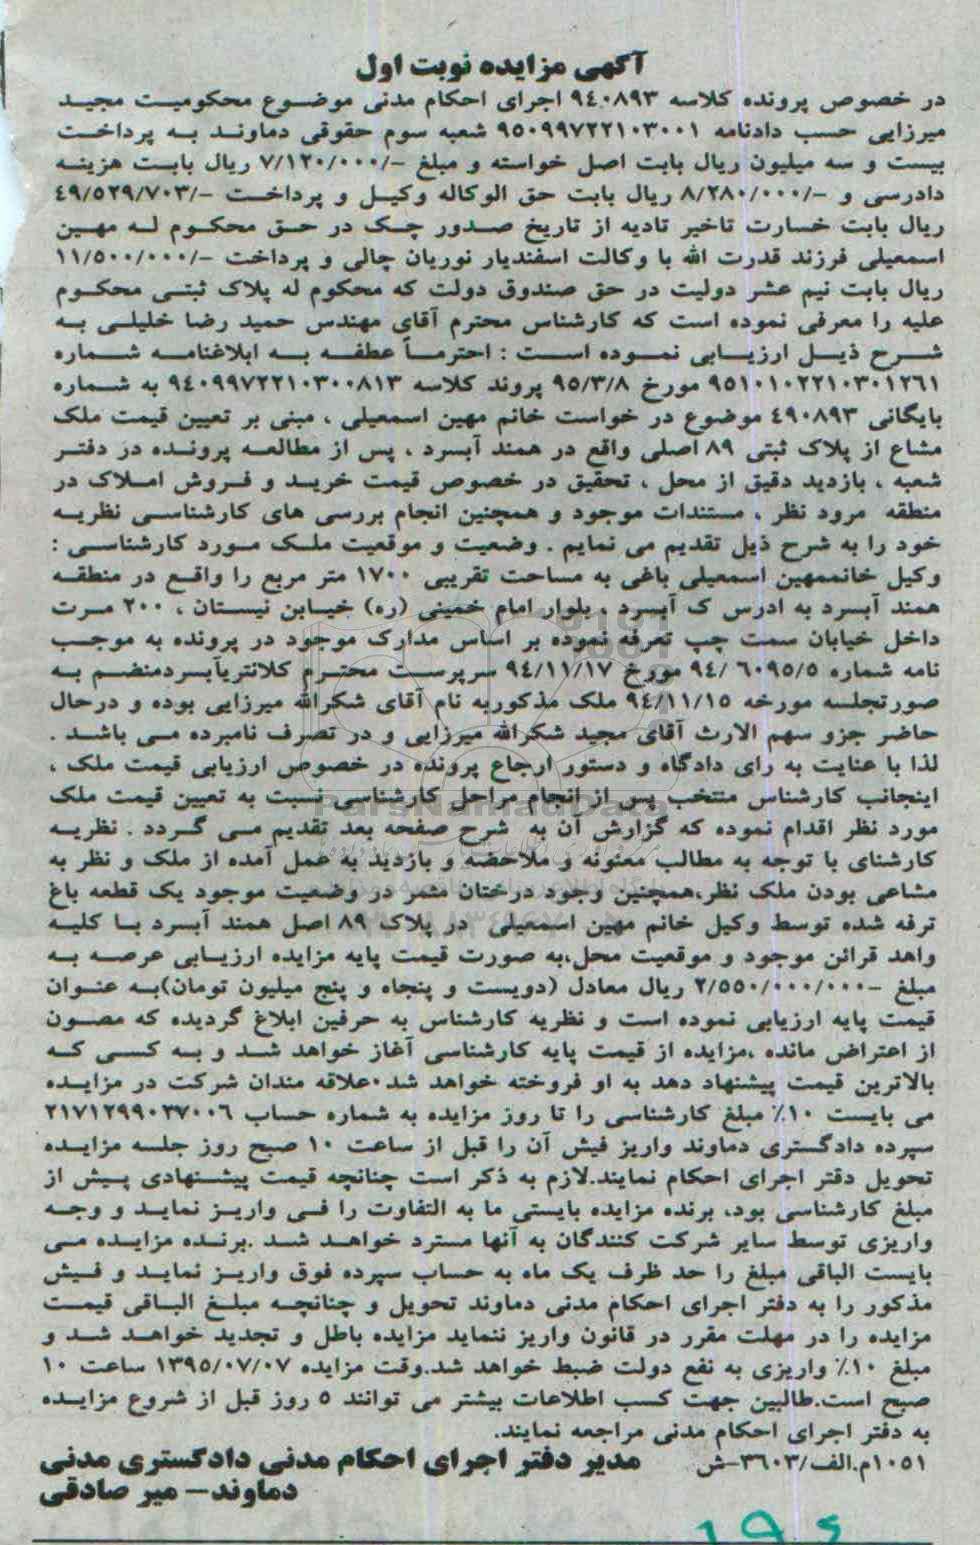 آگهی مزایده نوبت اول
در خصوص پرونده کلاسه ۹٤۰۸۹۳ اجرای احکام مدنی موضوع محکومیت مجید
میرزایی حسب دادنامه ۹۵۰۹۹۷۲۲۱۰۳۰۰۱ شعبه سوم حقوقی دماوند به پرداخت
بیست و سه میلیون ریال بابت اصل خواسته و مبلغ -/۷/۱۲۰/۰۰۰ ریال بابت هزینه
دادرسی و -/۸/۲۸۰/۰۰۰ ریال بابت حق الوکاله وکیل و پرداخت -/٤۹/۵۲۹/۷۰۳
ریال بابت خسارت تاخیر تادیه از تاریخ صدور چک در حق محکوم له مهین
اسمعیلی فرزند قدرت الله با وکالت اسفندیار نوریان چالی و پرداخت -/۱۱/۵۰۰/۰۰۰
ریال بابت نیم عشر دولیت در حق صندوق دولت که محکوم له پلاک ثبتی محکوم
علیه را معرفی نموده است که کارشناس محترم آقای مهندس حمید رضا خلیلی به
شرح ذیل ارزیابی نموده است : احتراماً عطفه به ابلاغنامه شماره
۹۵۱۰۱۰۲۲۱۰۳۰۱۲٦۱ مورخ ۹۵/۳/۸ پروند کلاسه ۹٤۰۹۹۷۲۲۱۰۳۰۰۸۱۳ به شماره
بایگانی ٤۹۰۸۹۳ موضوع در خواست خانم مهین اسمعیلی ، مبنی بر تعیین قیمت ملک
مشاع از پلاک ثبتی ۸۹ اصلی واقع در همند آبسرد ، پس از مطالعه پرونده در دفتر
شعبه ، بازدید دقیق از محل ، تحقیق در خصوص قیمت خرید و فروش املاک در
منطقه مرود نظر ، مستندات موجود و همچنین انجام بررسی های کارشناسی نظریه
خود را به شرح ذیل تقدیم می نمایم . وضعیت و موقعیت ملک مورد کارشناسی :
وکیل خانممهین اسمعیلی باغی به مساحت تقریبی ۱۷۰۰ متر مربع را واقع در منطقه
همند آبسرد به ادرس ک آبسرد ، بلوار امام خمینی (ره) خیابن نیستان ، ۲۰۰ مرت
داخل خیابان سمت چپ تعرفه نموده بر اساس مدارک موجود در پرونده به موجب
نامه شماره ٦۰۹۵/۵ /۹٤ مورخ ۹٤/۱۱/۱۷ سرپرست محترم کلانتریآبسردمنضم به
صورتجلسه مورخه ۹٤/۱۱/۱۵ ملک مذکوربه نام آقای شکرالله میرزایی بوده و درحال
حاضر جزو سهم الارث آقای مجید شکرالله میرزایی و در تصرف نامبرده می باشد .
لذا با عنایت به رای دادگاه و دستور ارجاع پرونده در خصوص ارزیابی قیمت ملک ،
اینجانب کارشناس منتخب پس از انجام مراحل کارشناسی نسبت به تعیین قیمت ملک
مورد نظر اقدام نموده که گزارش آن به شرح صفحه بعد تقدیم می گردد . نظریه
کارشنای با توجه به مطالب معنونه و ملاحضه و بازدید به عمل آمده از ملک و نظر به
مشاعی بودن ملک نظر،همچنین وجود درختان مثمر در وضعیت موجود یک قطعه باغ
ترفه شده توسط وکیل خانم مهین اسمعیلی در پلاک ۸۹ اصل همند آبسرد با کلیه
واهد قرائن موجود و موقعیت محل،به صورت قیمت پایه مزایده ارزیابی عرصه به
مبلغ -۲/۵۵۰/۰۰۰/۰۰۰ ریال معادل (دویست و پنجاه و پنج میلیون تومان)به عنوان
قیمت پایه ارزیابی نموده است و نظریه کارشناس به حرفین ابلاغ گردیده که مصون
از اعتراض مانده ،مزایده از قیمت پایه کارشناسی آغاز خواهد شد و به کسی که
بالاترین قیمت پیشنهاد دهد به او فروخته خواهد شد.علاقه مندان شرکت در مزایده
می بایست ۱۰٪ مبلغ کارشناسی را تا روز مزایده به شماره حساب ۲۱۷۱۲۹۹۰۳۷۰۰٦
سپرده دادگستری دماوند واریز فیش آن را قبل از ساعت ۱۰ صبح روز جلسه مزایده
تحویل دفتر اجرای احکام نمایند.لازم به ذکر است چنانچه قیمت پیشنهادی پیش از
مبلغ کارشناسی بود، برنده مزایده بایستی ما به التفاوت را فی واریز نماید و وجه
واریزی توسط سایر شرکت کنندگان به آنها مسترد خواهد شد .برنده مزایده می
بایست الباقی مبلغ را حد ظرف یک ماه به حساب سپرده فوق واریز نماید و فیش
مذکور را به دفتر اجرای احکام مدنی دماوند تحویل و چنانچه مبلغ الباقی قیمت
مزایده را در مهلت مقرر در قانون واریز ننماید مزایده باطل و تجدید خواهد شد و
مبلغ ۱۰٪ واریزی به نفع دولت ضبط خواهد شد.وقت مزایده ۱۳۹۵/۰۷/۰۷ ساعت ۱۰
صبح است.طالبین جهت کسب اطلاعات بیشتر می توانند ۵ روز قبل از شروع مزایده
به دفتر اجرای احکام مدنی مراجعه نمایند.
۱۰۵۱م.الف/۳٦۰۳-ش مدیر دفتر اجرای احکام مدنی دادگستری مدنی
دماوند- میر صادقی
ParsNamadData